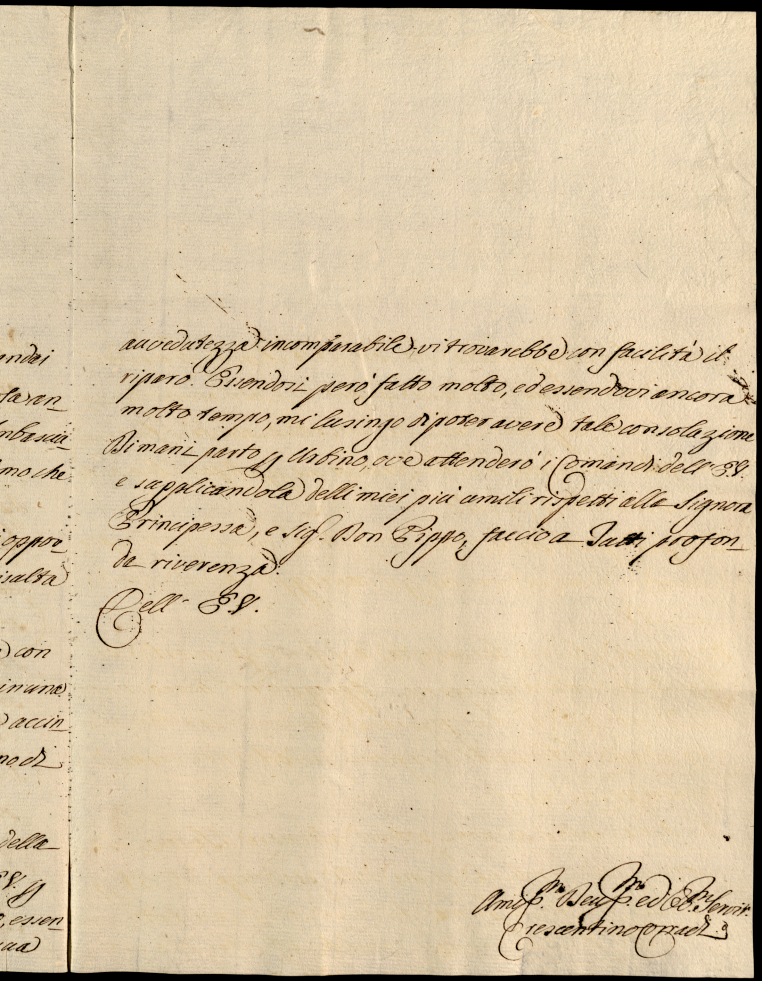 andei
fa an-
mbascia-
imo che
oppor-
isalta
con
in una
accin-
no di
della
essen-
avvedutezza incomparabile vi trovarebbe con facilità il
riparo. Essendosi però fatto molto, ed essendovi ancora
molto tempo, mi lusingo di poter avere tale consolazione
Dimani parto p Urbino, ove attenderò i Comandi dell' E.V.
e supplicandola delli miei più umili rispetti alla Signora
Principessa, e Sig. Don Pippo, faccio a Tutti profon-
da riverenza.
Dell' E.V.
Dev. ed Servit.
Crescentino Corradi